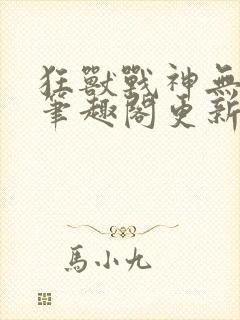 狂獸戰神無
筆趣閣更新
馬小九